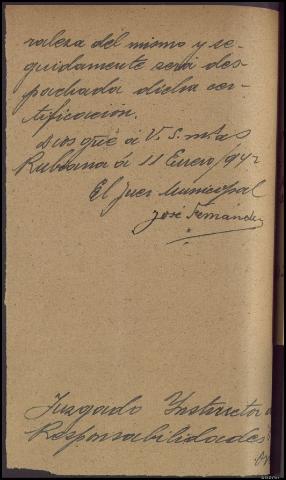 raleza del mismo y se-
guidamente será des-
pachada dicha cer-
tificación.
Dios gue á V. S. m. as
Rubiana á 11 Enero/942
El Juez Municipal
José Fernández
Juzgado Instructor
Responsabilidades